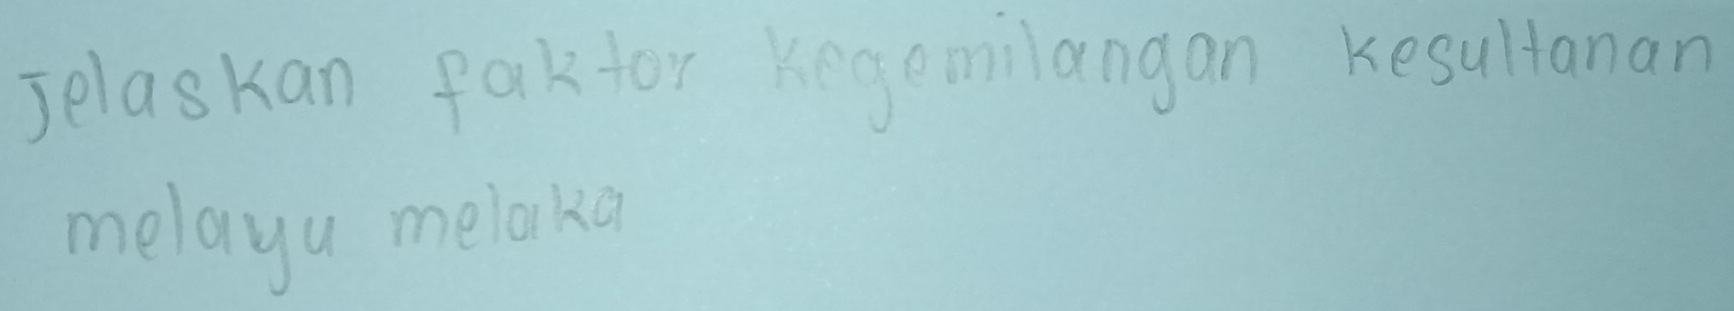 Jelaskan faktor kegemilangan kesultanan
melayu melaka